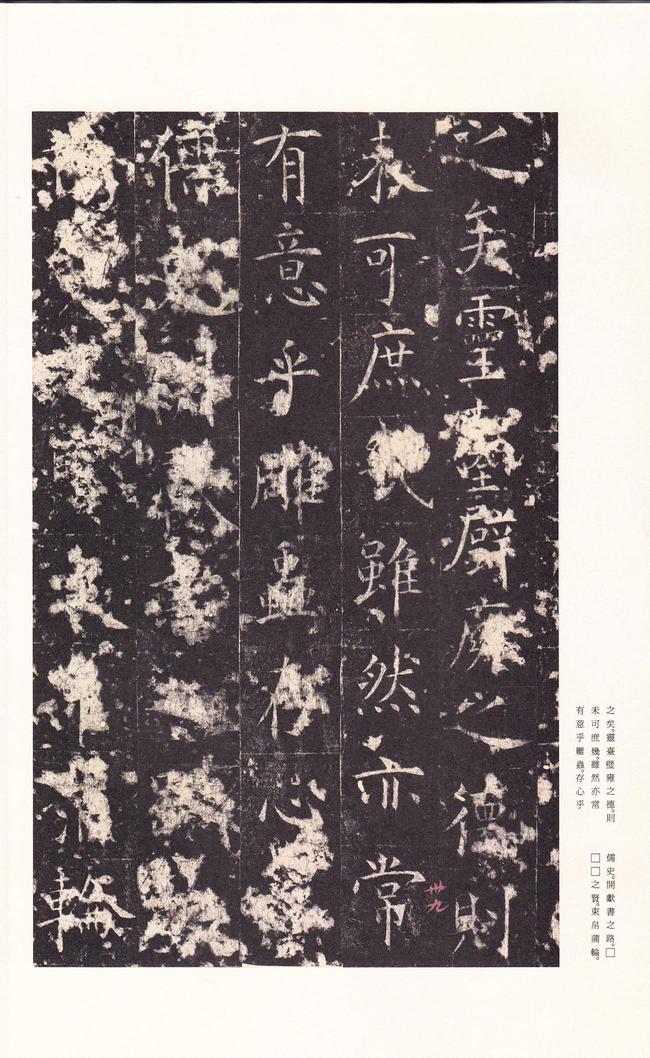 之矣靈臺璧雍之德則
未可庶幾雖然亦常
有意乎雕蟲存心乎
儒史開獻書之路
之賢束帛蒲輪
卅九
之矣。靈臺璧雍之德。則
未可庶幾。雖然亦常
有意乎雕蟲。存心乎
儒史。開獻書之路。□
□□之賢。束帛蒲輪。